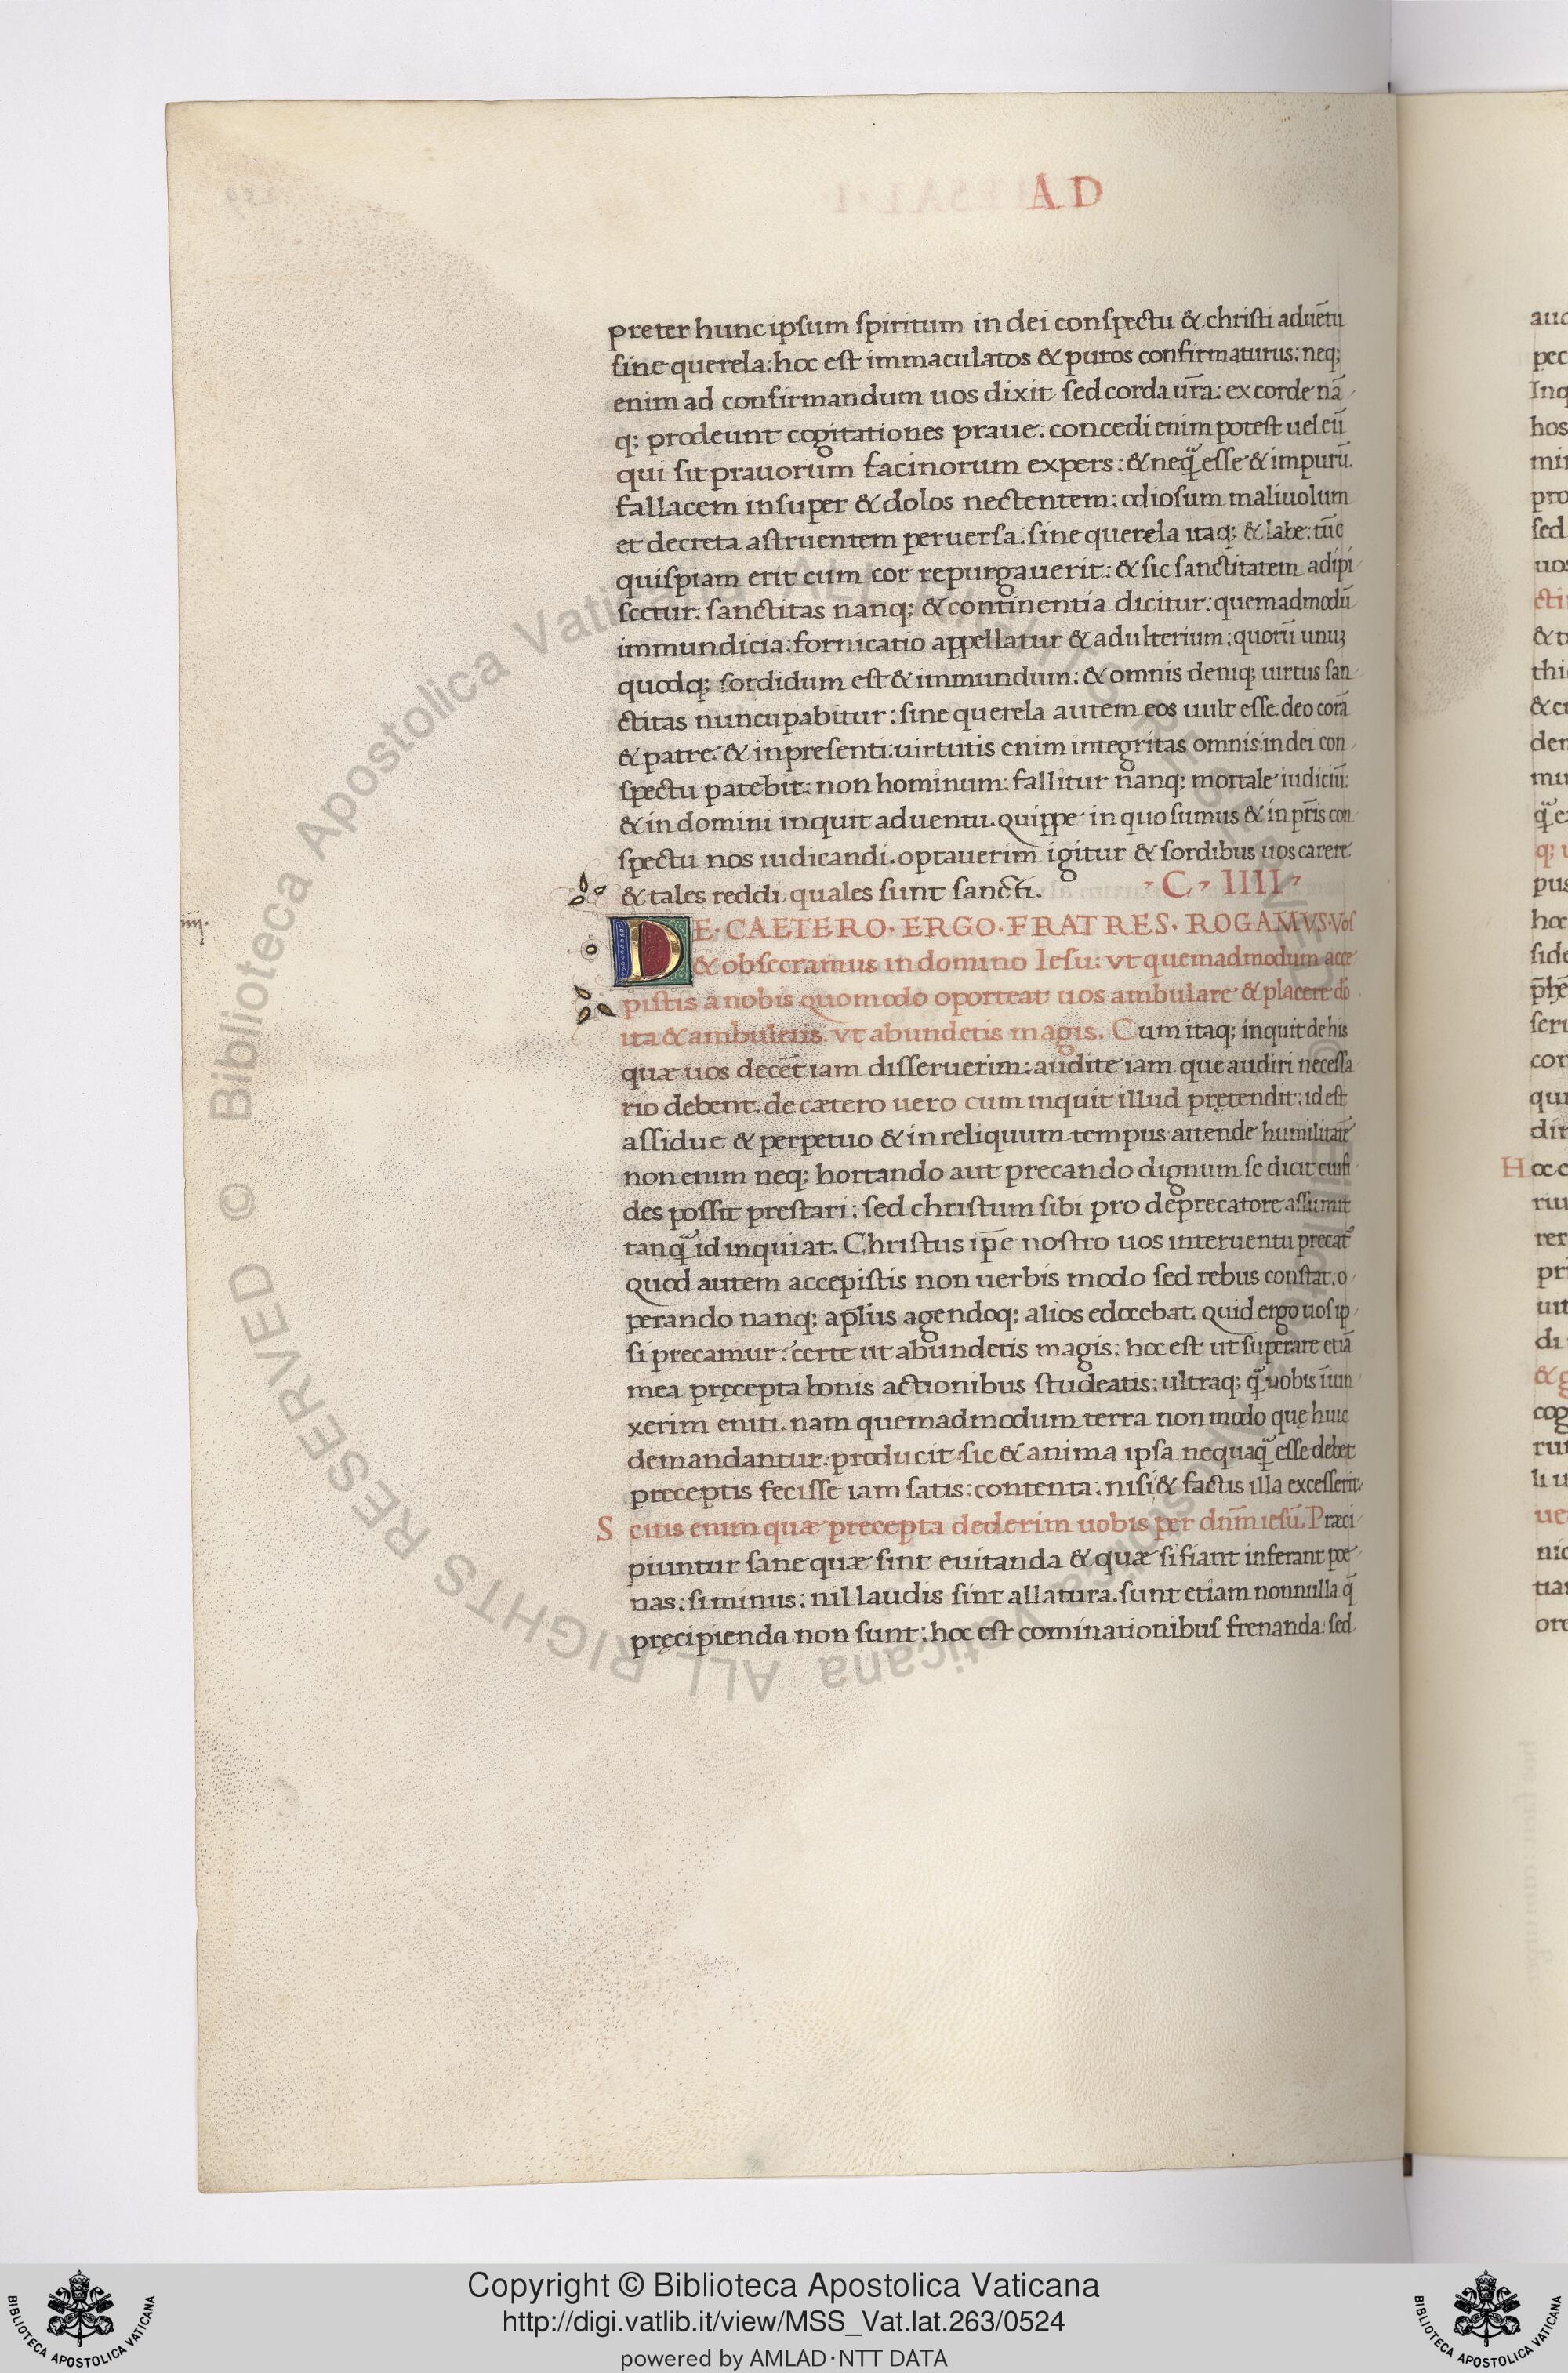 AD
preter hunc ipsum spiritum in dei conspectu & christi aduētū
sine querela: hoc est immaculatos & puros confirmaturus: neq;
enim ad confirmandum uos dixit sed corda ur̄a: ex corde nā
q; prodeunt cogitationes praue: concedi enim potest uel eū
qui sit prauorum facinorum expers: & neq̃ esse & impurū.
fallacem insuper & dolos nectentem: odiosum maliuolum
et decreta astruentem peruersa: sine querela itaq; & labe: tūc
quispiam erit cum cor repurgauerit: & sic sanctitatem adipi
scetur: sanctitas nanq; & continentia dicitur: quemadmodū
immundicia: fornicatio appellatur & adulterium: quorū unuȝ
quodq; sordidum est & immundum: & omnis deniq; uirtus san
ctitas nuncupabitur: sine querela autem eos uult esse deo corā
& patre & in presenti: uirtutis enim integritas omnis: in dei con
spectu patebit: non hominum: fallitur nanq; mortale iudiciū:
& in domini inquit aduentu. quippe in quo sumus & in pr̄is con
spectu nos iudicandi. optauerim igitur & sordibus uos carere
& tales reddi quales sunt sancti. C IIII
iiii.
DE. CAETERO. ERGO. FRATRES. ROGAMVS. Vos
& obsecramus in domino Iesu: vt quemadmodum acce
pistis a nobis quomodo oporteat uos ambulare & placere dō
ita & ambuletis. vt abundetis magis. Cum itaq; inquit de his
quæ uos decēt iam disseruerim: audite iam que audiri necessa
rio debent. de cætero uero cum inquit illud pretendit: id est
assidue & perpetuo & in reliquum tempus attende humilitatē
non enim neq; hortando aut precando dignum se dicit cui fi
des possit prestari: sed christum sibi pro deprecatore assumit
tanq̃ id inquiat. Christus ip̄e nostro uos interuentu precat̃
Quod autem accepistis non uerbis modo sed rebus constat. o
perando nanq; apl̄us agendoq; alios edocebat. Quid ergo uos ip
si precamur? certe ut abundetis magis: hoc est ut superare etiā
mea pręcepta bonis actionibus studeatis: ultraq; q̃ uobis īiun
xerim eniti. nam quemadmodum terra non modo quę huic
demandantur: producit: sic & anima ipsa nequaq̃ esse debet
preceptis fecisse iam satis: contenta: nisi & factis illa excesserit
S citis enim quæ precepta dederim uobis per dn̄m iesū. Præci
piuntur sane quæ sint euitanda & quæ si fiant inferant poe
nas: si minus: nil laudis sint allatura. sunt etiam nonnulla q̄
pręcipienda non sunt: hoc est cominationibus frenanda: sed
Copyright © Biblioteca Apostolica Vaticana
http://digi.vatlib.it/view/MSS_Vat.lat.263/0524
powered by AMLAD·NTT DATA